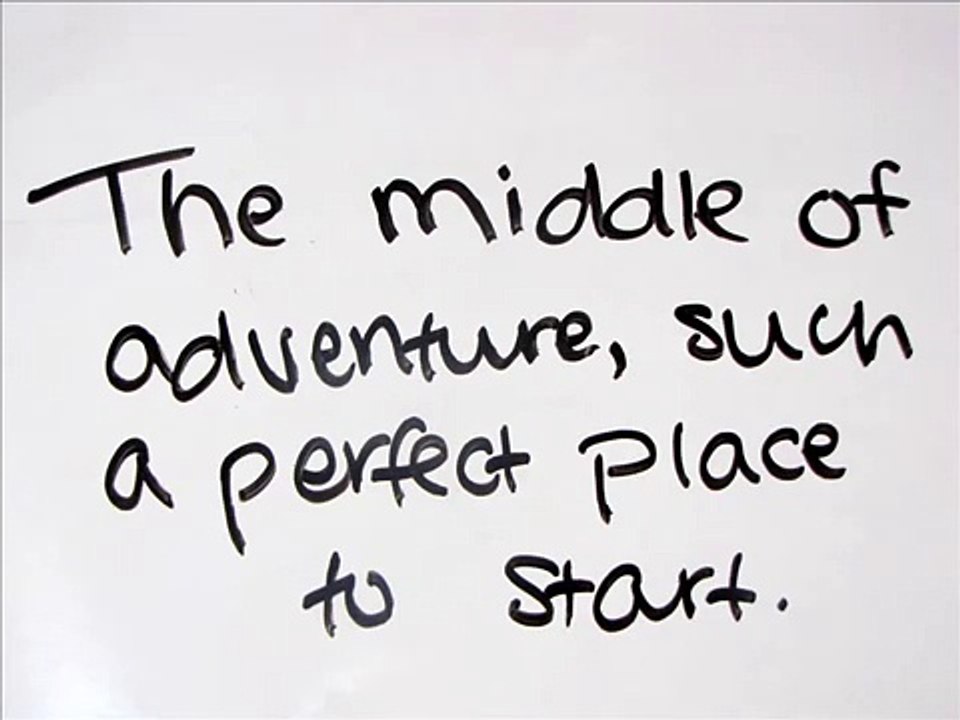 The middle of
adventure, such
a perfect place
to start.